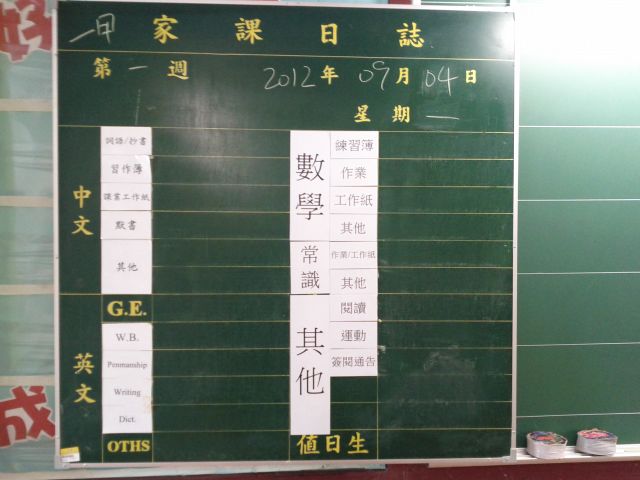 一日 家課日誌
第一週 2012年09月04日
星期一
中文
詞語/抄書
習作簿
課業工作紙
默書
其他
英文
G.E.
W.B.
Penmanship
Writing
Dict.
OTHS
數學
練習簿
作業
工作紙
其他
常識
作業/工作紙
其他
其他
閱讀
運動
簽閱通告
值日生
成